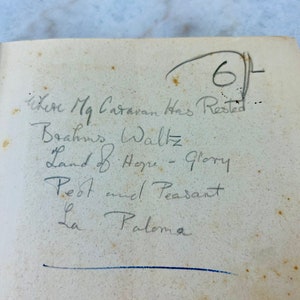 6/-
Where My Caravan Has Rested
Brahms Waltz
Land of Hope - Glory
Peot and Peasant
La Paloma